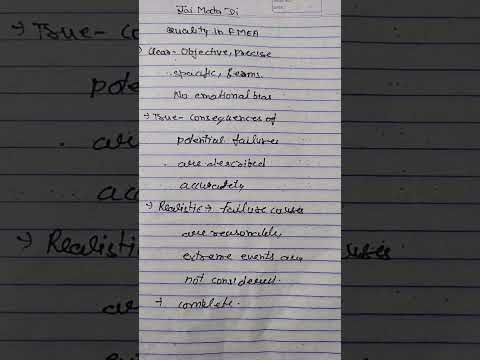 Jai Mata Di
Quality in FMEA
Clear- Objective, Precise
specific, terms.
No emotional bias
→ True- consequences of
potential failures
are described
accurately
→ Realistic → failure causes
are reasonable
extreme events are
not considered.
→ complete.